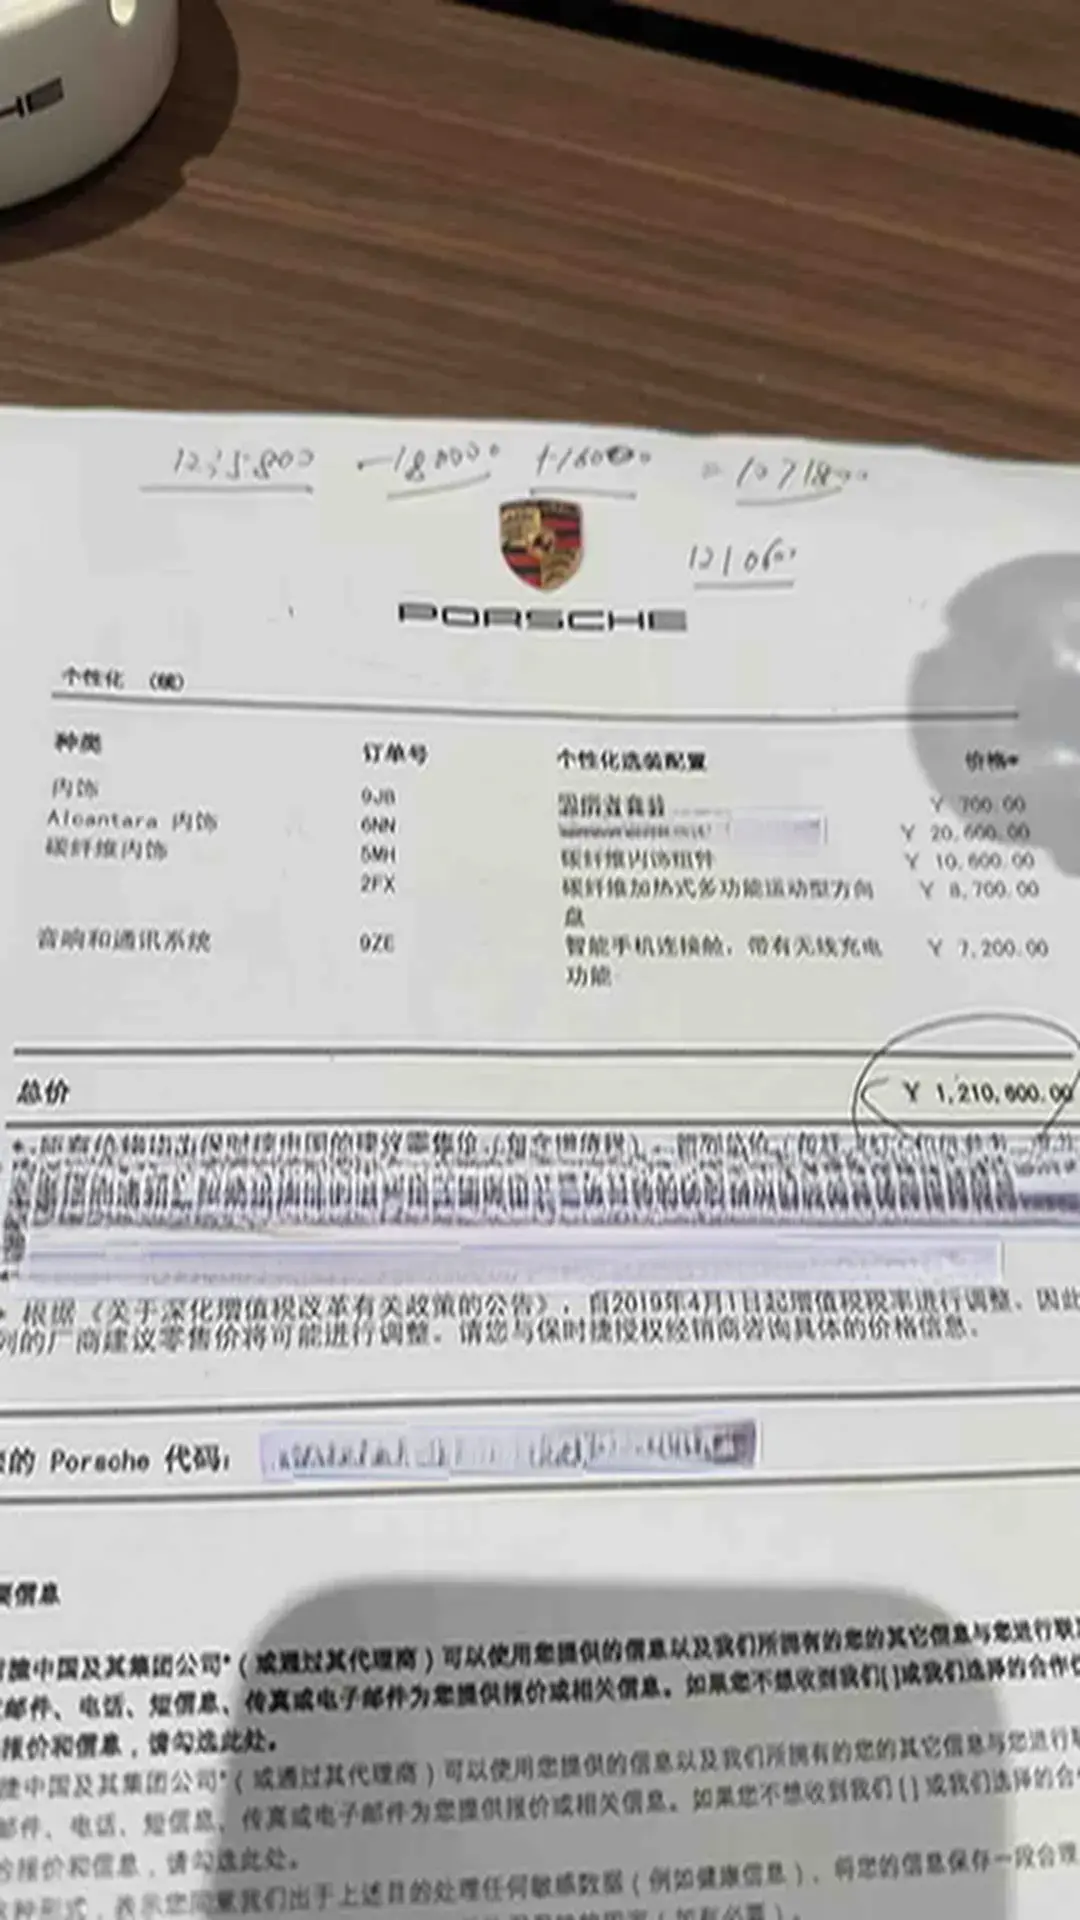 HE
1235800 -180000 +16000 = 1071800
121060
PORSCHE
个性化 (续)
种类 订单号 个性化选装配置 价格*
内饰 9JB ¥ 700.00
Alcantara 内饰 6NN ¥ 20,600.00
碳纤维内饰 5MH 碳纤维内饰组件 ¥ 10,600.00
2FX 碳纤维加热式多功能运动型方向 ¥ 8,700.00
盘
音响和通讯系统 9ZE 智能手机连接舱，带有无线充电 ¥ 7,200.00
功能
总价 ¥ 1,210,600.00
根据《关于深化增值税改革有关政策的公告》，自2019年4月1日起增值税税率进行调整，因此
列的厂商建议零售价将可能进行调整，请您与保时捷授权经销商咨询具体的价格信息。
的 Porsche 代码：
信息
捷中国及其集团公司*（或通过其代理商）可以使用您提供的信息以及我们所拥有的您的其它信息与您进行联
邮件、电话、短信息、传真或电子邮件为您提供报价或相关信息。如果您不想收到我们[]或我们选择的合作
报价和信息，请勾选此处。
捷中国及其集团公司*（或通过其代理商）可以使用您提供的信息以及我们所拥有的您的其它信息与您进行
邮件、电话、短信息、传真或电子邮件为您提供报价或相关信息。如果您不想收到我们[]或我们选择的合
报价和信息，请勾选此处。
种形式，表示您同意我们出于上述目的处理任何敏感数据（例如健康信息），将您的信息保存一段合理
（如有必要）。